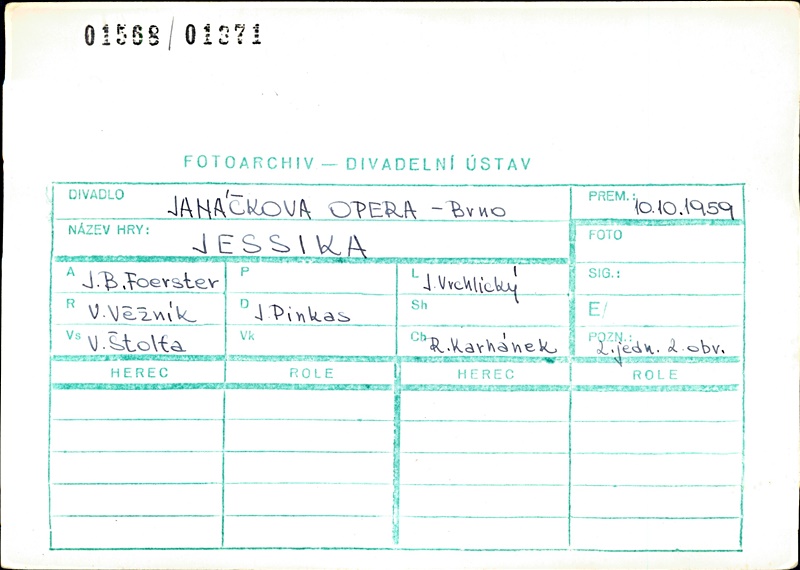 01568/01371
FOTOARCHIV — DIVADELNÍ ÚSTAV
DIVADLO JANÁČKOVA OPERA - Brno PREM.: 10.10.1959
NÁZEV HRY: JESSIKA FOTO
A J.B.Foerster P L J.Vrchlický SIG.:
R V.Věžník D J.Pinkas Sh E/
Vs V.Štolfa Vk Ch R.Karhánek POZN.: 2.jedn. 2.obr.
HEREC ROLE HEREC ROLE